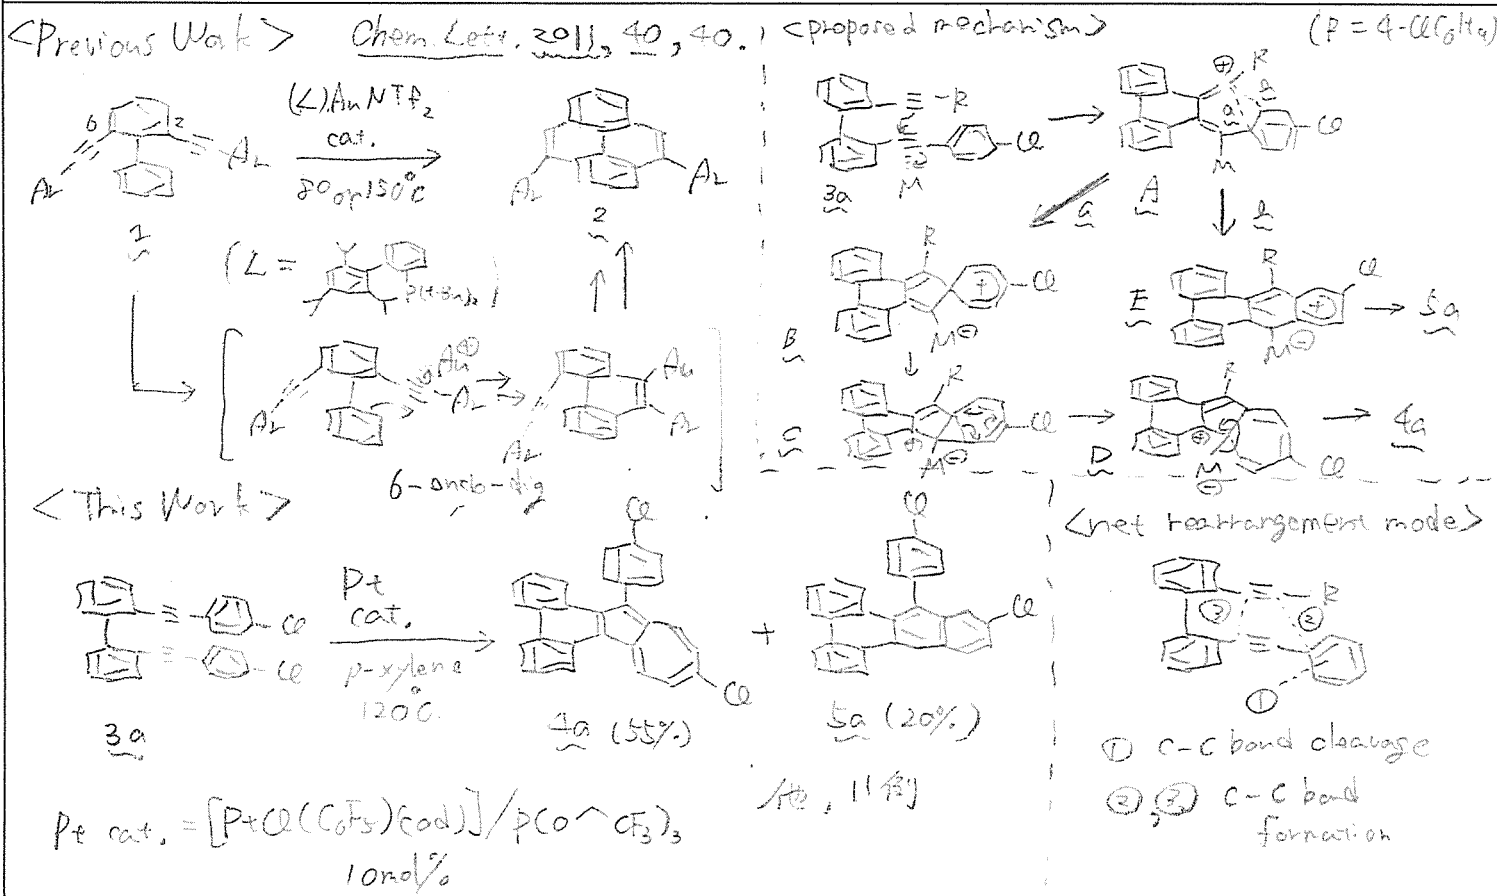 <Previous Work> Chem. Lett. 2011, 40, 40.
6
2
Ar
Ar
1
(L)AuNTf2
cat.
80 or 150°C
Ar
Ar
2
(L =
P(t-Bu)2
)
Au⊕
Ar
Ar
Au
Ar
Ar
6-endo-dig
<This Work>
Cl
Cl
3a
Pt
cat.
p-xylene
120°C.
Cl
Cl
4a (55%)
+
Cl
Cl
5a (20%)
他, 11例
Pt cat. = [PtCl(C6F5)(cod)]/P(O^CF3)3
10mol%
<proposed mechanism> (R = 4-ClC6H4)
-R
Cl
M
3a
⊕
R
b
a
Cl
M
A
a
b
R
+
Cl
M⊖
B
R
Cl
+
M⊖
E
5a
R
Cl
M⊖
C
R
⊕
M
⊖
Cl
D
4a
<net rearrangement mode>
R
③
②
①
① C-C bond cleavage
②,③ C-C bond
formation